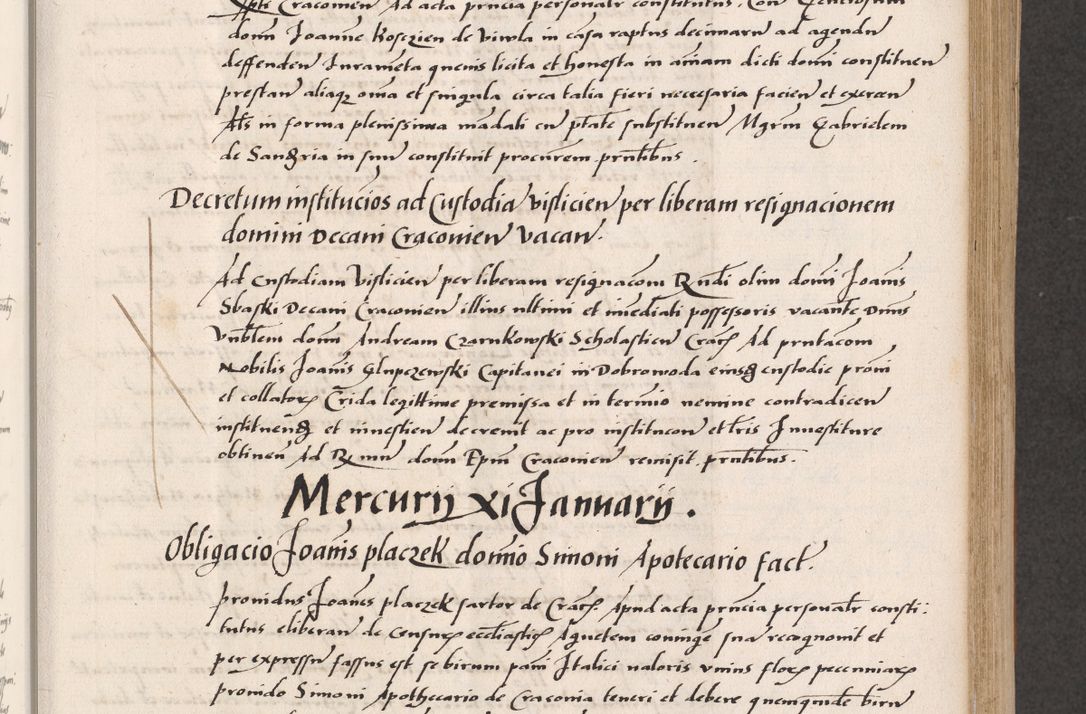 Cracovien Ad acta pñcia personalr constitutus. Con Generosum
domĩ Joanne Koseczien de Viwla in casa raptus decimarũ ad agendũ
deffenden Iurameta quevis licita et honesta in aĩam dicti domĩ constituen
prestan aliaqz oĩa et singula circa talia fieri necessaria facien et exercen
Als in forma plenissima mãdati cũ ptãte substituen Mgrm Gabrielem
de Sangria in suũ constituit procurem prñtibus.
Decretum institucõis ad Custodiã Vislicien per liberam resignacionem
domini Decani Cracovien Vacan.
Ad Custodiam Vislicien per liberam resignacõm Rndi olim domĩ Joanis
Sbaski Decani Cracovien illius ultimi et imediati possessoris vacante Dñus
Vnblem domĩ Andream Czarnkowski Scholasticũ Crac Ad prntacõm
Nobilis Joanis Glupczewski Capitanei in Dobrowoda eiusq custodie proni
et collatorz Crida legittime premissa et in termĩo nemine contradicen
instituendũ et investien decrevit ac pro institucõn et lris Investiture
obtinen Ad R mũ domĩ Epm Cracovien remisit prñtibus.
Mercurij xi Januarij.
Obligacio Joanis placzek domĩo Simoni Apotecario fact.
providus Joanes placzek sartor de Crac Apud acta prñcia personalr consti:
tutus eliberan de Censurz ecclïasticz Agnetem coniuge sua recognovit et
per expressũ fassus est se birum pani Italici valoris unius florz pecuniarz
provido Simoni Apothecario de Cracovia teneri et debere quemquide birũ